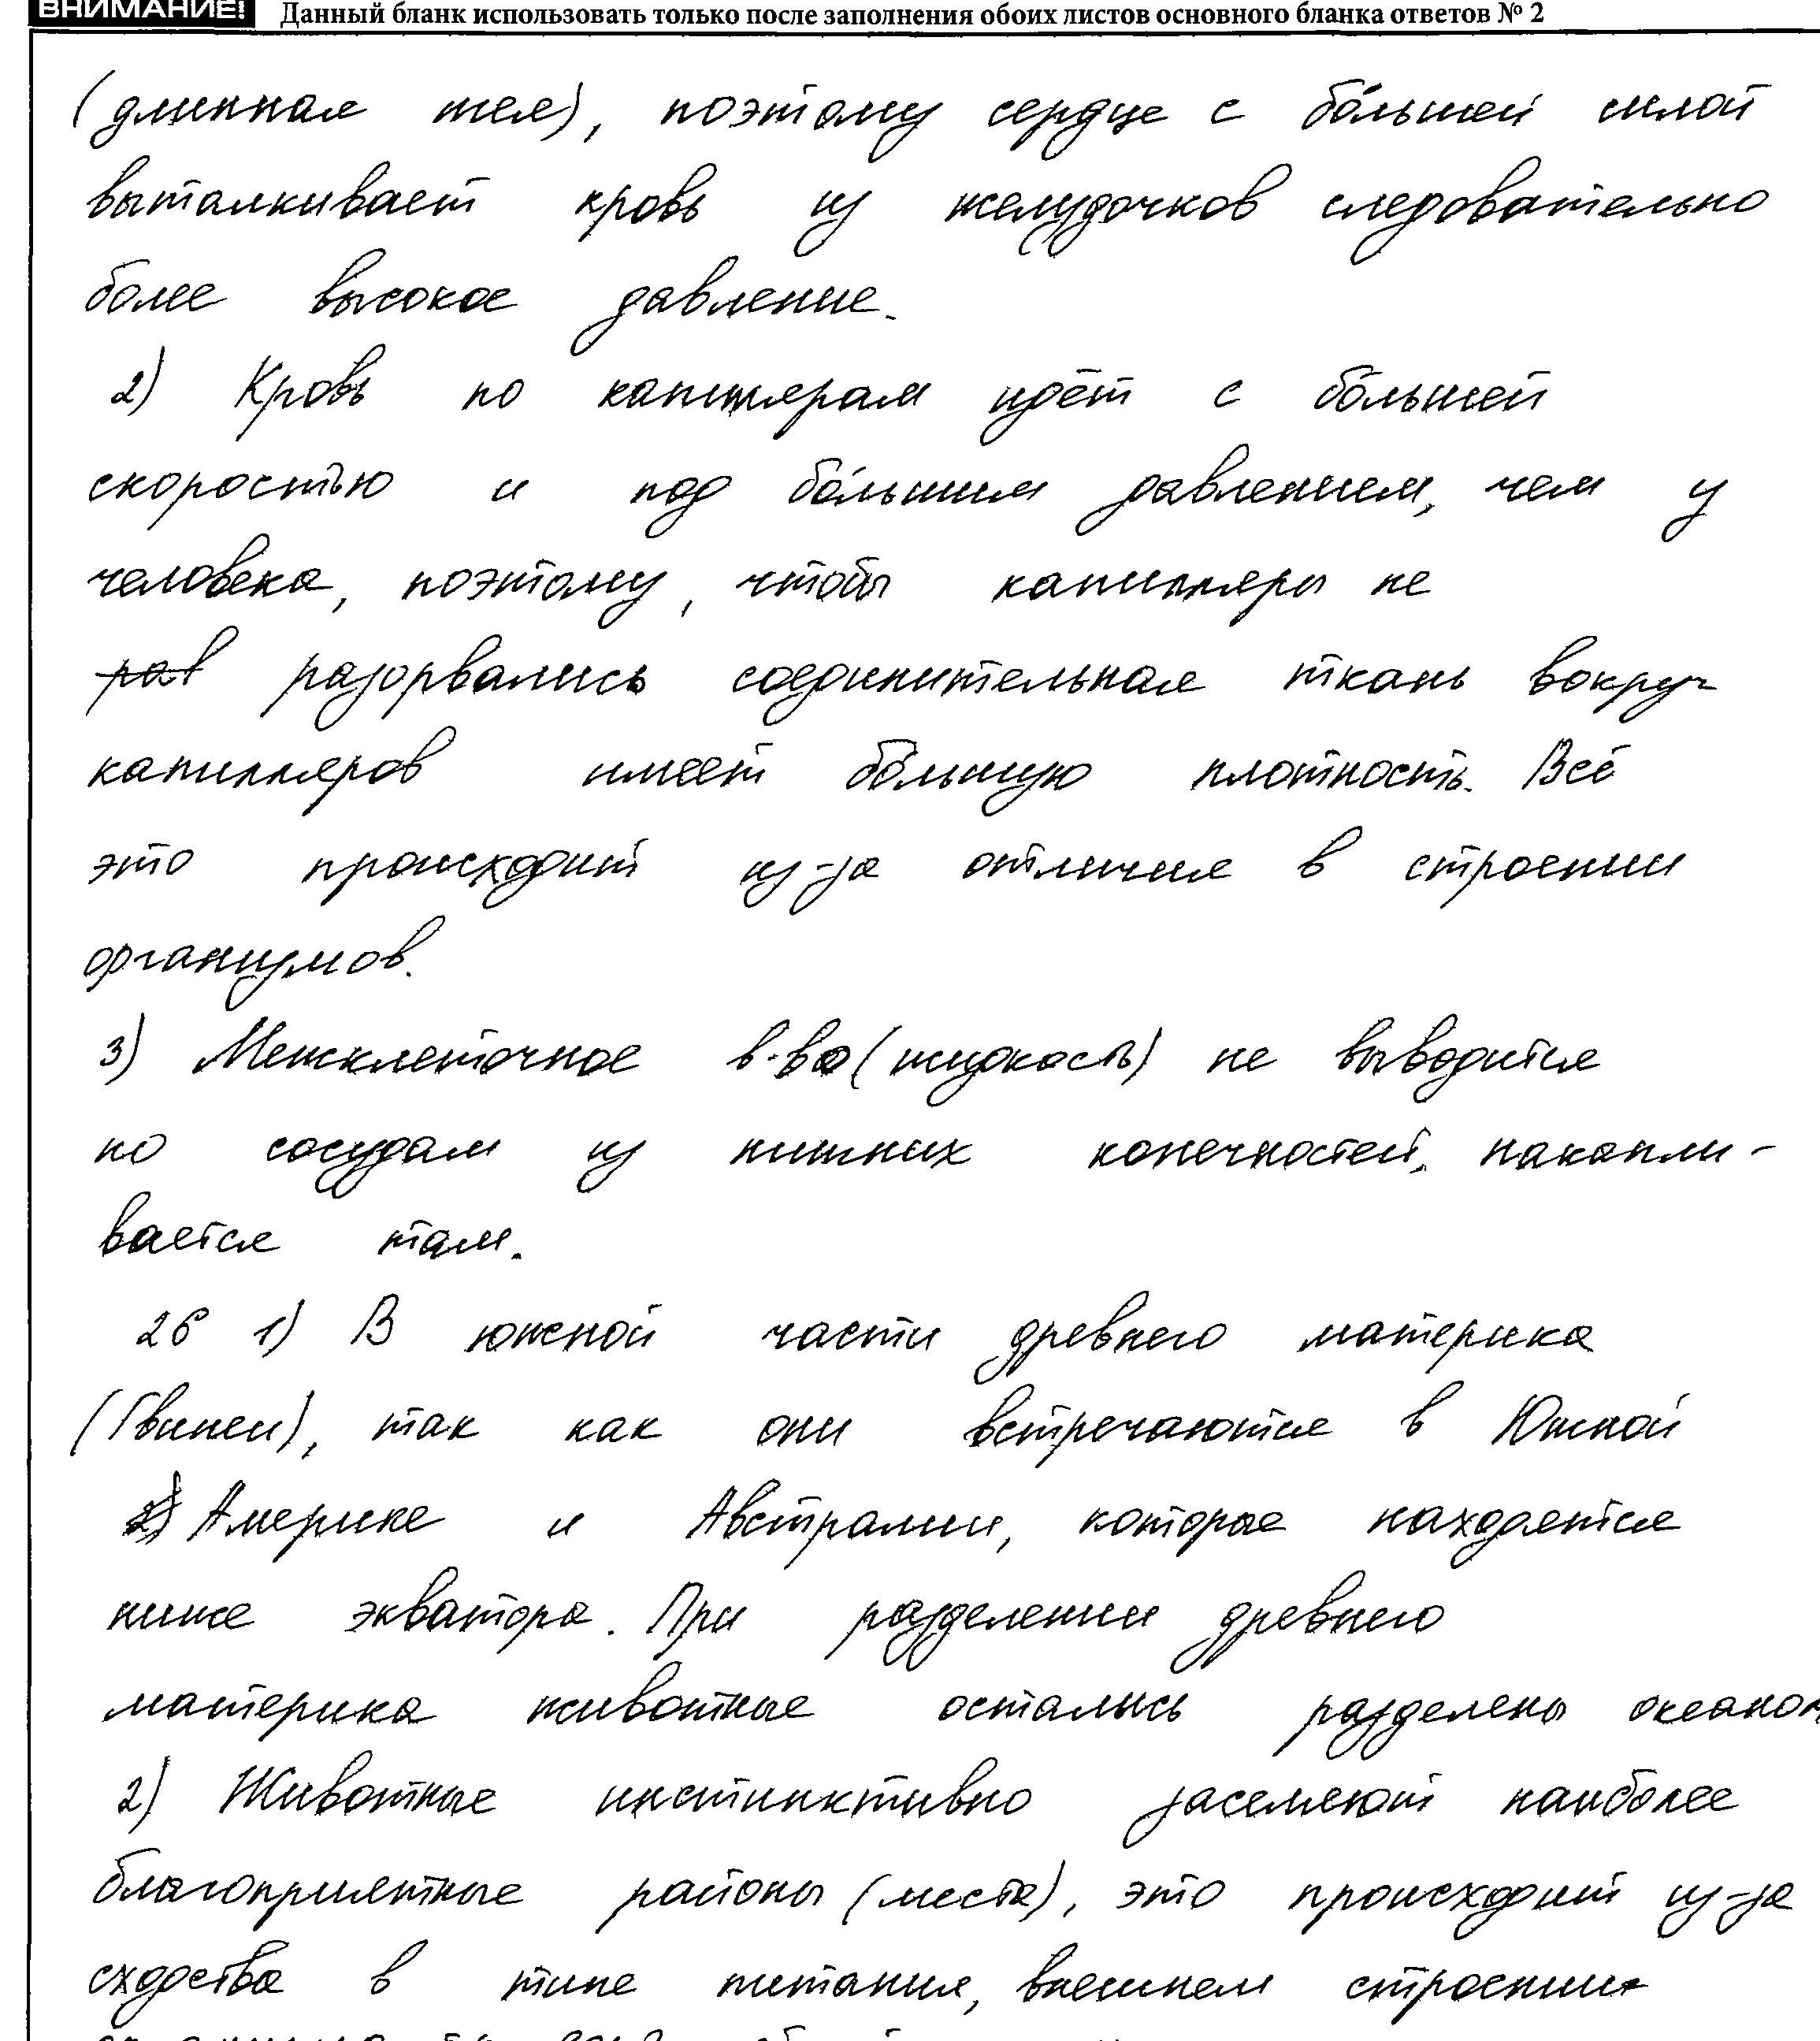 ВНИМАНИЕ! Данный бланк использовать только после заполнения обоих листов основного бланка ответов № 2
(длинная шея), поэтому сердце с бо́льшей силой
выталкивает кровь из желудочков следовательно
более высокое давление.
2) Кровь по капилярам идёт с бо́льшей
скоростью и под бо́льшим давлением, чем у
человека, поэтому, чтобы капилляры не
рав разорвались соединительная ткань вокруг
капилляров имеет бо́льшую плотность. Всё
это происходит из-за отличия в строении
организмов.
3) Межклеточное в-во (жидкость) не выводится
по сосудам из нижних конечностей, накапли-
вается там.
26 1) В южной части древнего материка
(Гвинеи), так как они встречаются в Южной
2) Америке и Австралии, которые находятся
ниже экватора. При разделении древнего
материка животные остались разделены океаном
2) Животные инстинктивно заселяют наиболее
благоприятные районы (места), это происходит из-за
сходства в типе питания, внешнем строении